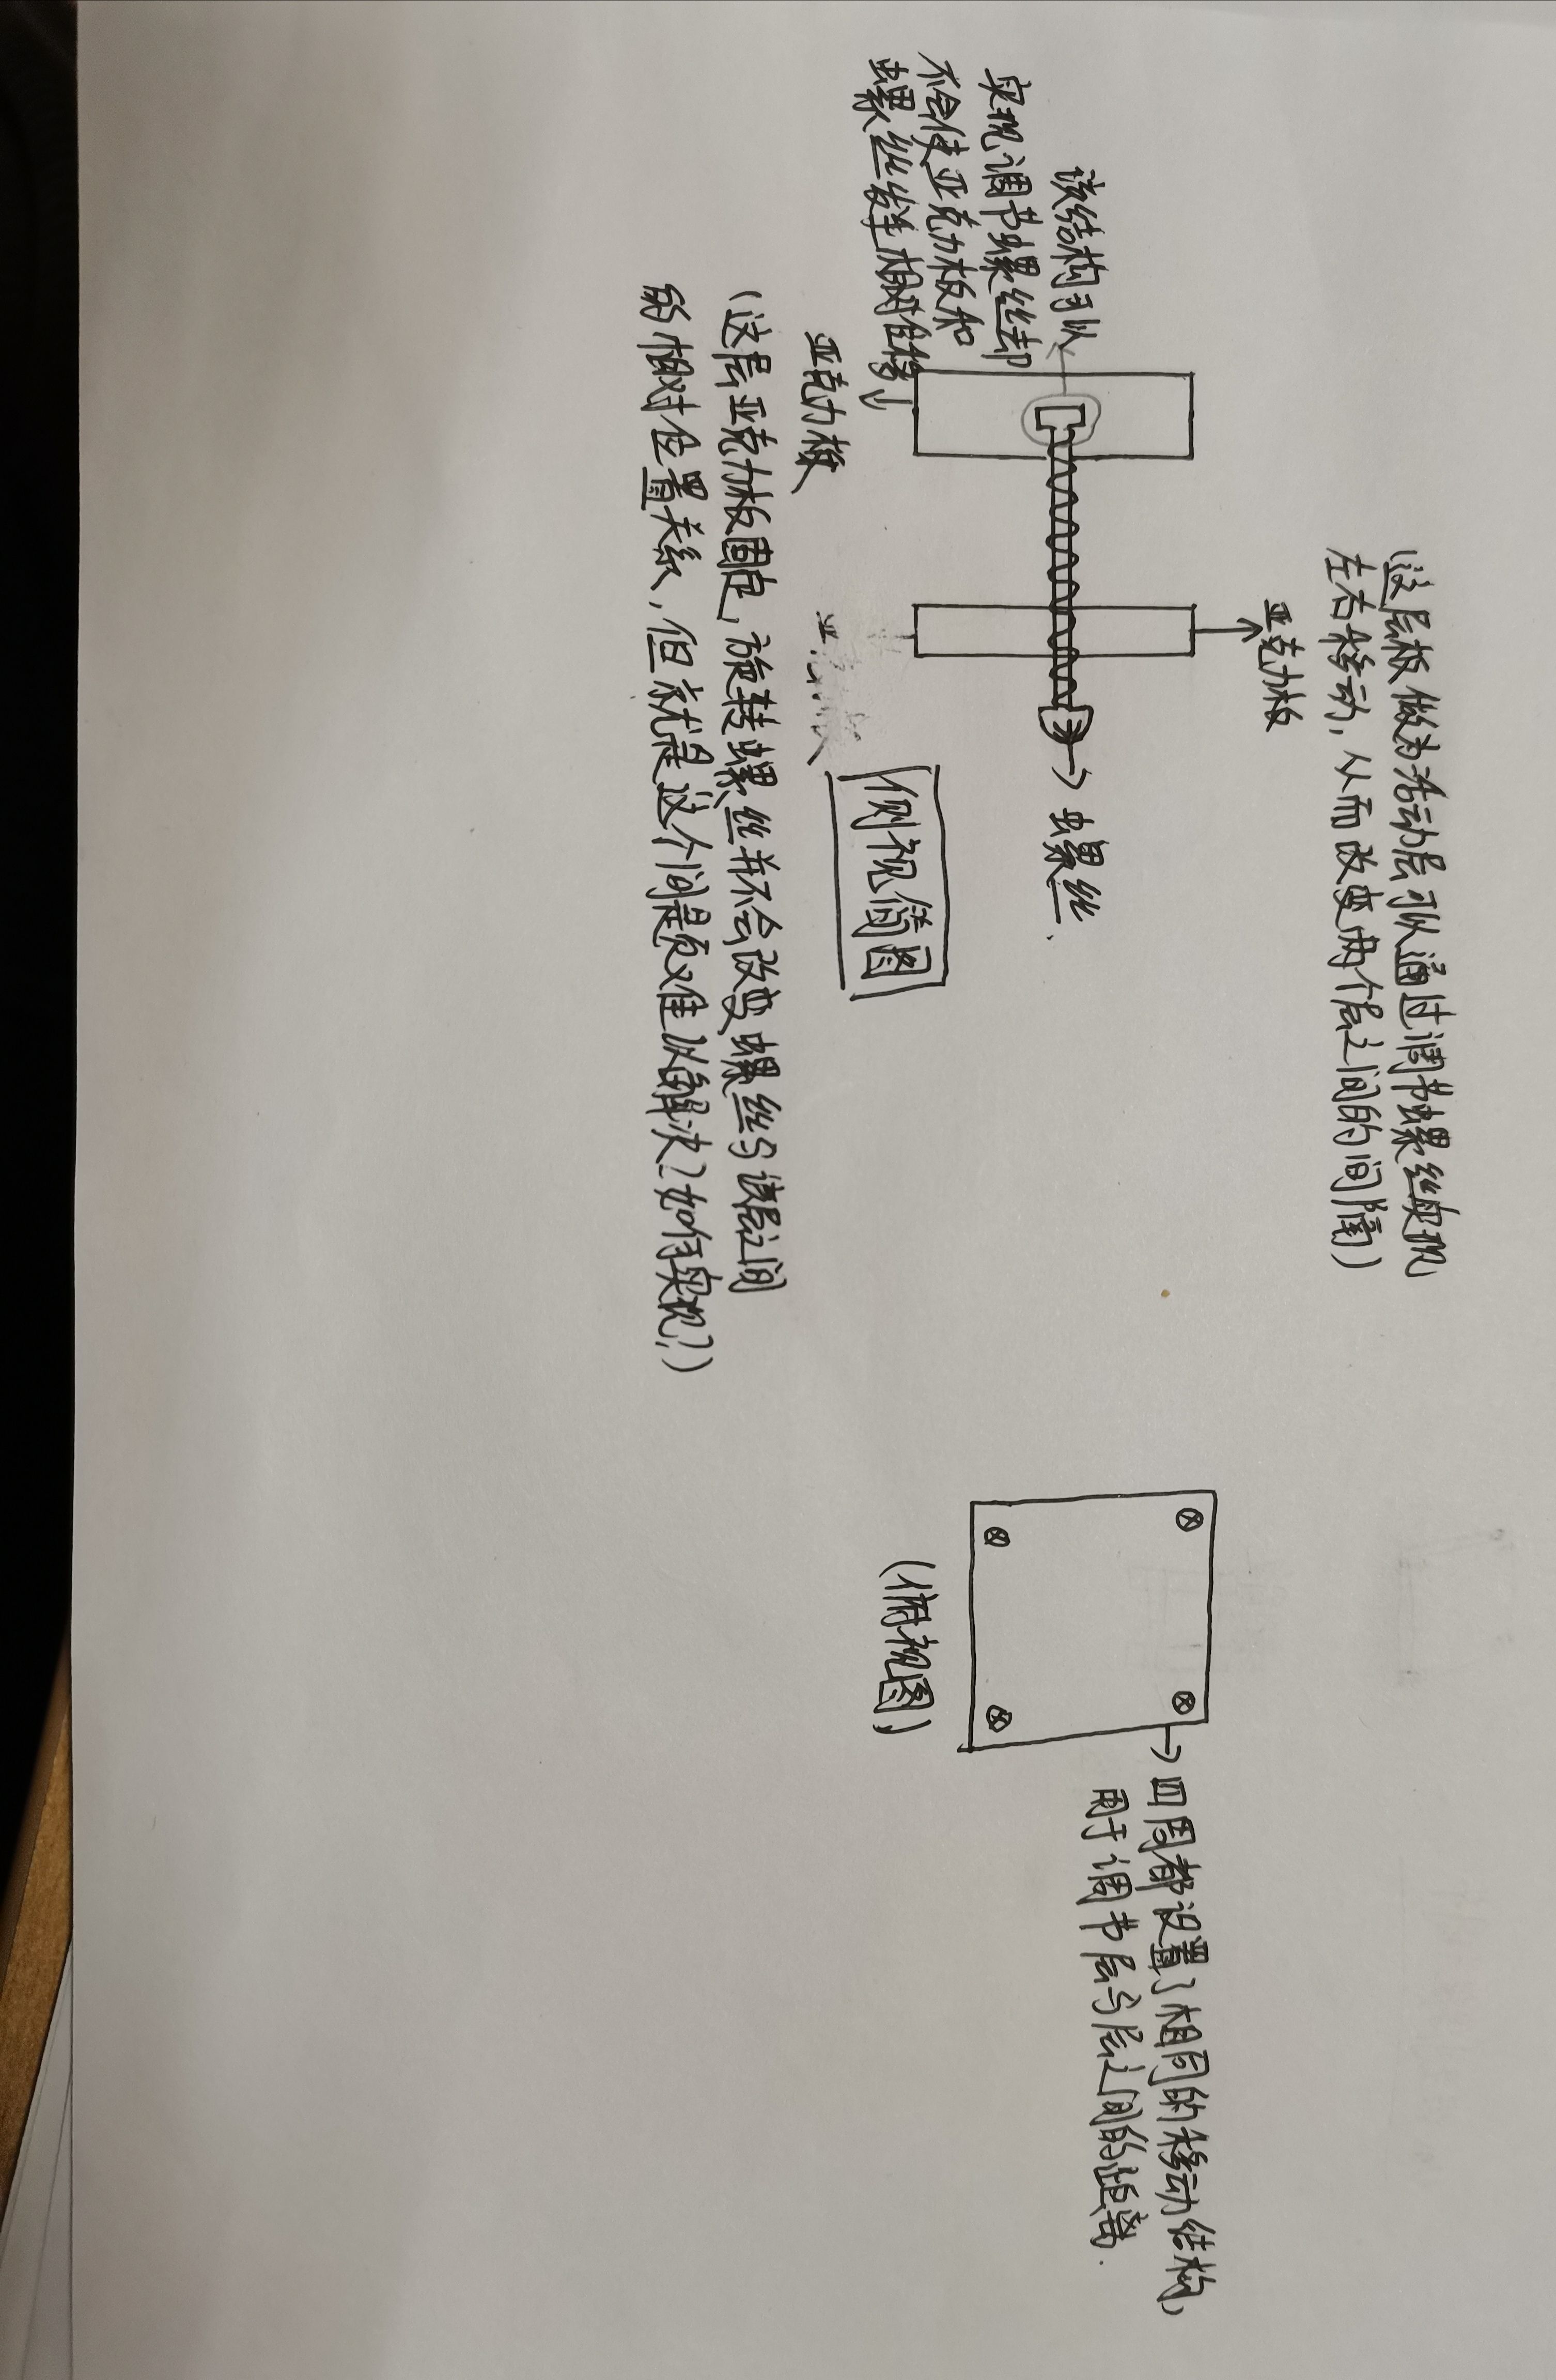 (这层板做为活动层可以通过调节螺丝实现
左右移动，从而改变两个层之间的间隔)
亚克力板
该结构可以
实现调节螺丝却
不会使亚克力板和
螺丝发生相对位移
螺丝
侧视简图
亚克力板
(这层亚克力板固定，旋转螺丝并不会改变螺丝与该层之间
的相对位置关系，但就是这个问题难以解决？如何实现？)
四周都设置了相同的移动结构，
用于调节层与层之间的距离.
(俯视图)